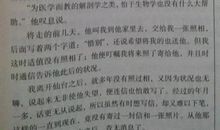 "为医学而教的解剖学之类，怕于生物学也没有什么大帮
助。"他叹息说。
将走的前几天，他叫我到他家里去，交给我一张照相，
后面写着两个字道："惜别"，还说希望将我的也送他。但我
这时适值没有照相了；他便叮嘱我将来照了寄给他，并且时
时通信告诉他此后的状况。
我离开仙台之后，就多年没有照过相，又因为状况也无
聊，说起来无非使他失望，便连信也怕敢写了。经过的年月
一多，话更无从说起，所以虽然有时想写信，却又难以下笔，
这样的一直到现在，竟没有寄过一封信和一张照片。从他那